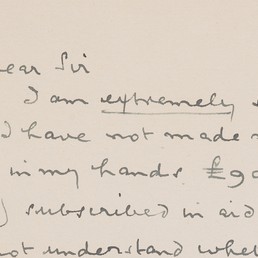 ear Sir
I am extremely s
I have not made
in my hands £90
) subscribed in aid
not understand whe